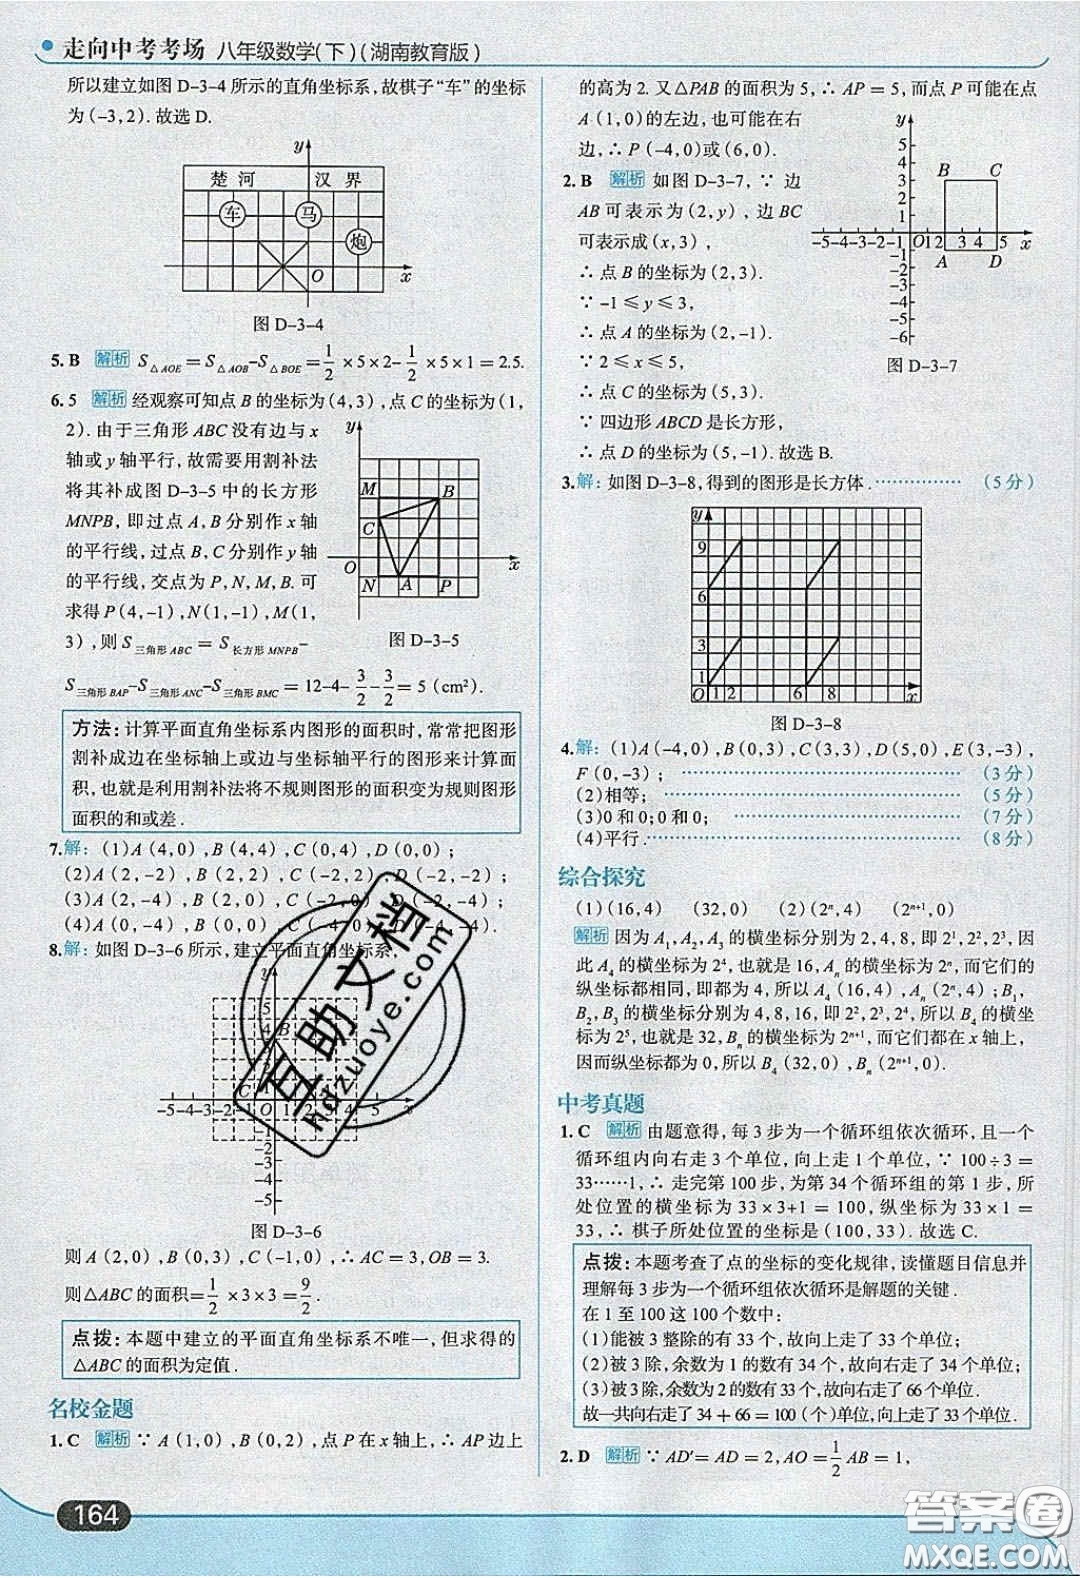 走向中考考场 八年级数学(下)(湖南教育版)
所以建立如图 D-3-4 所示的直角坐标系,故棋子“车”的坐标
为(-3,2). 故选 D.
y
楚河 汉界
车 马
炮
O x
图 D-3-4
5. B 解析 S△AOE = S△AOB-S△BOE = 1/2 ×5×2- 1/2 ×5×1 = 2.5.
6. 5 解析 经观察可知点 B 的坐标为(4,3),点 C 的坐标为(1,
2). 由于三角形 ABC 没有边与 x
轴或 y 轴平行,故需要用割补法
将其补成图 D-3-5 中的长方形
MNPB,即过点 A,B 分别作 x 轴
的平行线,过点 B,C 分别作 y 轴
的平行线,交点为 P,N,M,B. 可
求得 P(4,-1),N(1,-1),M(1,
3),则 S三角形ABC = S长方形MNPB-
y
M B
C
O x
N A P
图 D-3-5
S三角形BAP-S三角形ANC-S三角形BMC = 12-4- 3/2 - 3/2 = 5 (cm²).
方法:计算平面直角坐标系内图形的面积时,常常把图形
割补成边在坐标轴上或边与坐标轴平行的图形来计算面
积,也就是利用割补法将不规则图形的面积变为规则图形
面积的和或差.
7. 解:(1)A(4,0),B(4,4),C(0,4),D(0,0);
(2)A(2,-2),B(2,2),C(-2,2),D(-2,-2);
(3)A(2,-4),B(2,0),C(-2,0),D(-2,-4);
(4)A(0,-4),B(0,0),C(-4,0),D(-4,-4).
8. 解:如图 D-3-6 所示,建立平面直角坐标系,
5
4
B
C
-5-4-3-2-1 O 1 2 3 4 5 x
-1
-2
-3
-4
-5
图 D-3-6
则 A(2,0),B(0,3),C(-1,0),∴ AC = 3,OB = 3.
则△ABC 的面积= 1/2 ×3×3 = 9/2.
点拨:本题中建立的平面直角坐标系不唯一,但求得的
△ABC 的面积为定值.
名校金题
1. C 解析 ∵ A(1,0),B(0,2),点 P 在 x 轴上,∴ AP 边上
的高为 2. 又△PAB 的面积为 5,∴ AP = 5,而点 P 可能在点
A(1,0)的左边,也可能在右
边,∴ P(-4,0)或(6,0).
2. B 解析 如图 D-3-7,∵ 边
AB 可表示为(2,y),边 BC
可表示成(x,3),
∴ 点 B 的坐标为(2,3).
∵ -1 ≤ y ≤ 3,
∴ 点 A 的坐标为(2,-1).
∵ 2 ≤ x ≤ 5,
∴ 点 C 的坐标为(5,3).
∵ 四边形 ABCD 是长方形,
∴ 点 D 的坐标为(5,-1). 故选 B.
y
6
5
4
B C
3
2
1
-5-4-3-2-1 O 1 2 3 4 5 x
-1 A D
-2
-3
-4
-5
-6
图 D-3-7
3. 解:如图 D-3-8,得到的图形是长方体. …………… (5 分)
y
9
6
3
1
O 1 2 6 8 x
图 D-3-8
4. 解:(1)A(-4,0),B(0,3),C(3,3),D(5,0),E(3,-3),
F(0,-3); …………… (3 分)
(2)相等; …………… (5 分)
(3)0 和 0;0 和 0; …………… (7 分)
(4)平行. …………… (8 分)
综合探究
(1)(16,4) (32,0) (2)(2ⁿ,4) (2ⁿ⁺¹,0)
解析 因为 A₁,A₂,A₃ 的横坐标分别为 2,4,8,即 2¹,2²,2³,因
此 A₄ 的横坐标为 2⁴,也就是 16,Aₙ 的横坐标为 2ⁿ,而它们的
纵坐标都相同,即都为 4,所以 A₄(16,4),Aₙ(2ⁿ,4);B₁,
B₂,B₃ 的横坐标分别为 4,8,16,即 2²,2³,2⁴,所以 B₄ 的横坐标
为 2⁵,也就是 32,Bₙ 的横坐标为 2ⁿ⁺¹,而它们都在 x 轴上,
因而纵坐标都为 0,所以 B₄(32,0),Bₙ(2ⁿ⁺¹,0).
中考真题
1. C 解析 由题意得,每 3 步为一个循环组依次循环,且一个
循环组内向右走 3 个单位,向上走 1 个单位,∵ 100÷3 =
33……1,∴ 走完第 100 步,为第 34 个循环组的第 1 步,所
处位置的横坐标为 33×3+1 = 100,纵坐标为 33×1 =
33,∴ 棋子所处位置的坐标是(100,33). 故选 C.
点拨:本题考查了点的坐标的变化规律,读懂题目信息并
理解每 3 步为一个循环组依次循环是解题的关键.
在 1 至 100 这 100 个数中:
(1)能被 3 整除的有 33 个,故向上走了 33 个单位;
(2)被 3 除,余数为 1 的数有 34 个,故向右走了 34 个单位;
(3)被 3 除,余数为 2 的数有 33 个,故向右走了 66 个单位.
故一共向右走了 34 + 66 = 100(个)单位,向上走了 33 个单位.
2. D 解析 ∵ AD′ = AD = 2,AO = 1/2 AB = 1,
164
互助文档
hdzuoye.com
答案圈
MXQE.COM